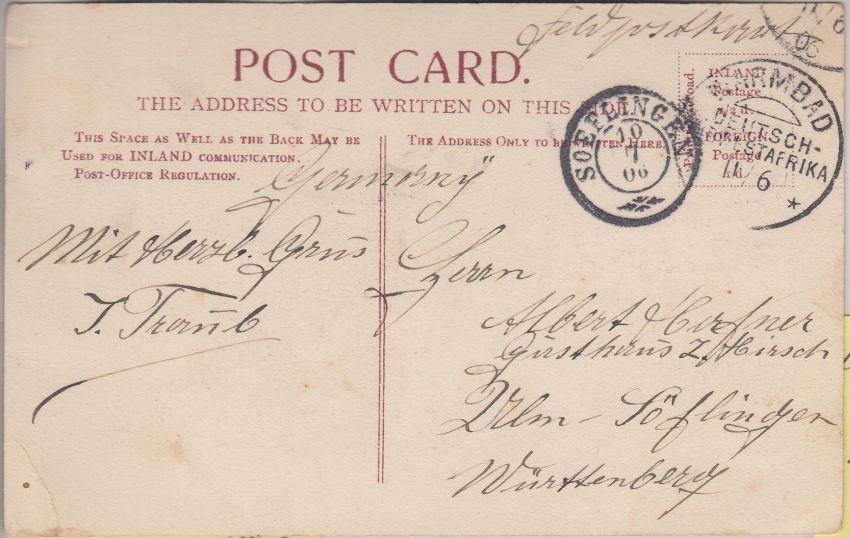 Feldpostkarte
POST CARD.
THE ADDRESS TO BE WRITTEN ON THIS
THIS SPACE AS WELL AS THE BACK MAY BE
USED FOR INLAND COMMUNICATION.
POST-OFFICE REGULATION.
THE ADDRESS ONLY TO BE WRITTEN HERE.
INLAND
Postage
½d.
FOREIGN
Postage
1d.
06
WARMBAD
DEUTSCH-
SÜDWESTAFRIKA
11/6
*
SOEFLINGEN
10
7
06
Germany
Mit Herzl. Grus
J. Traub
Herrn
Albert Hafner
Gasthaus z. Hirsch
Ulm - Söflingen
Württemberg